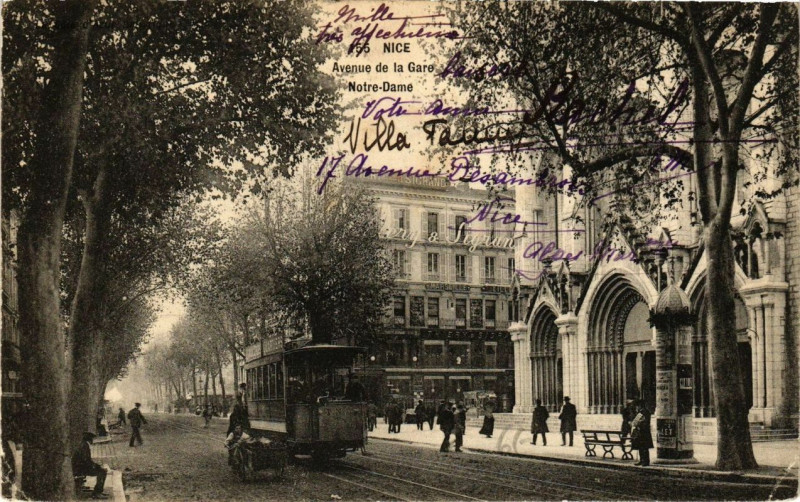 Mille
très affectueux
155 NICE
Avenue de la Gare
Notre-Dame
baisers
Votre amie Rachel
Villa
17 Avenue Desambrois
Nice
Alpes Marit